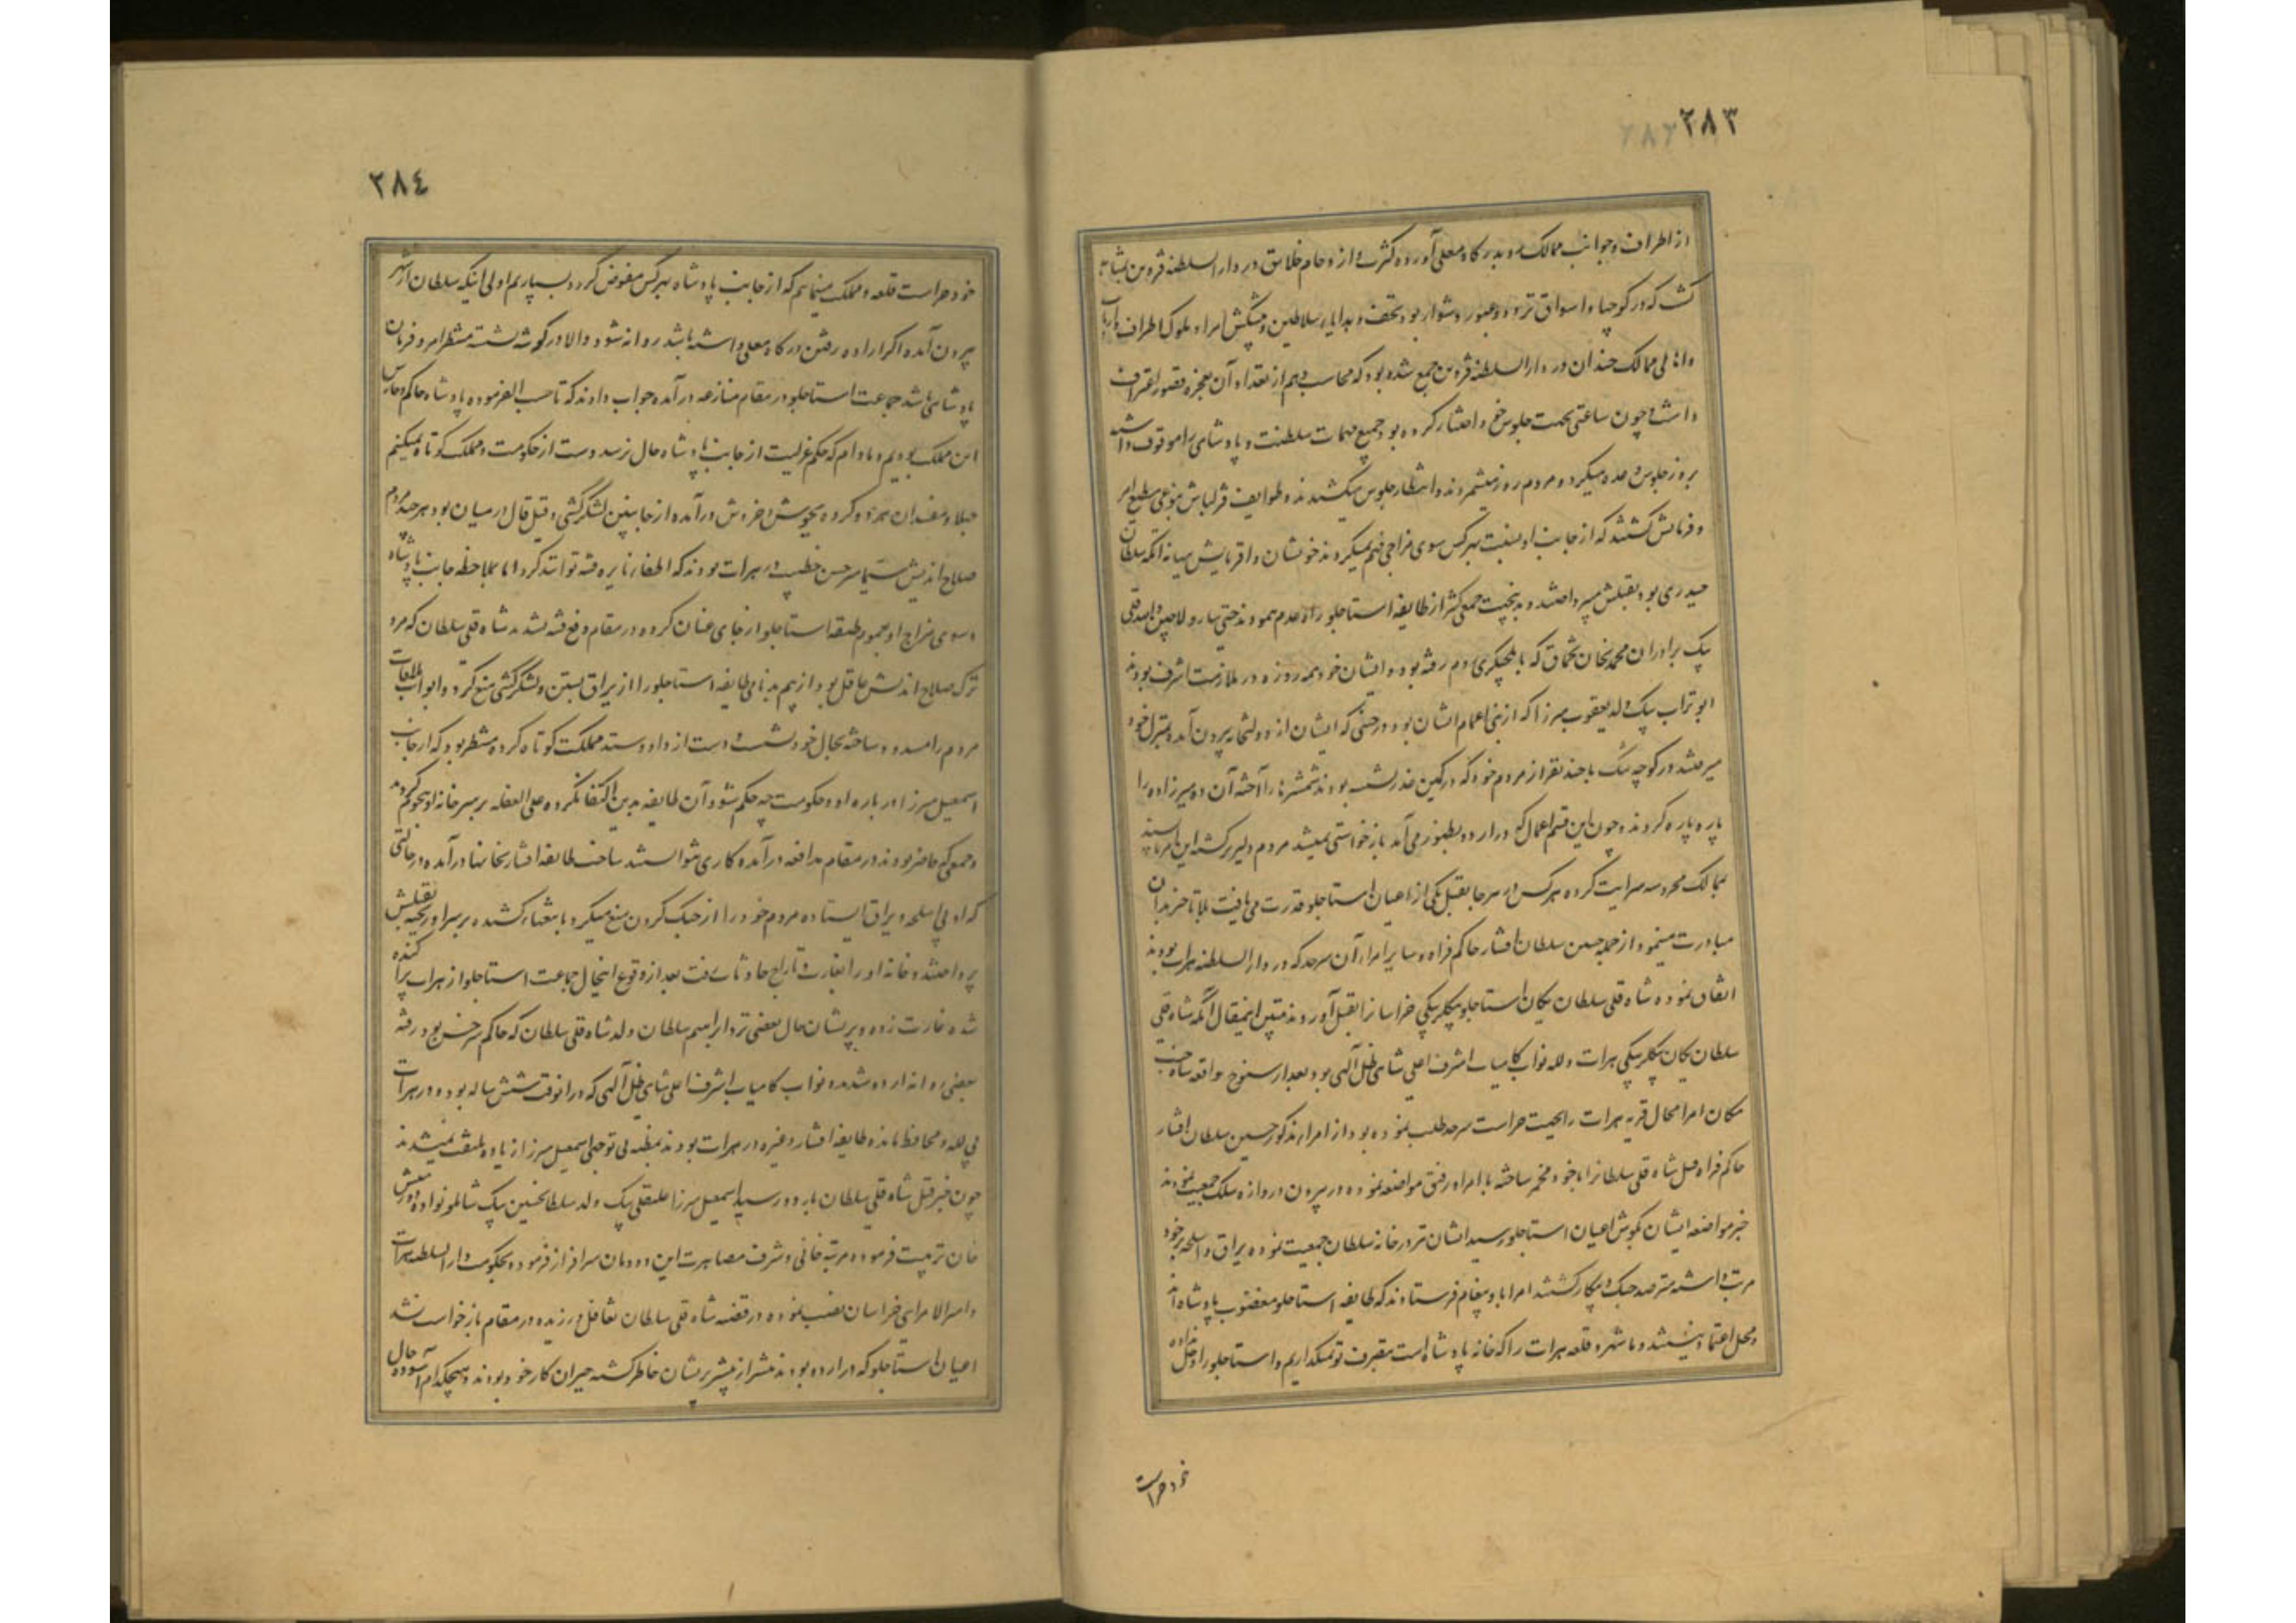 ٢٨٣
از اطراف و جوانب ممالک رو بدرگاه معلی آورده کثرت و ازدحام خلایق در دار السلطنه قزوین بمثابه
کشت که در کوچها و اسواق تردد و عبور دشوار بود تحف و هدایاء سلاطین و پیشکش امرا و ملوک اطراف و ارباب
و اهالی ممالک چندان در دار السلطنه قزوین جمع شده بود که محاسب وهم از تعداد آن بعجز و قصور اعتراف
داشت و چون ساعتی بجهت جلوس خود اختیار کرده بود جمیع مهمات سلطنت و پادشاهی را موقوف داشته
بروز جلوس وعده میکرد و مردم روز میشمردند و انتظار جلوس میکشیدند و طوایف قزلباش بنوعی مطیع امر
و فرمانش کشتند که از جانب او بنسبت هرکس سوی مزاجی فهم میکردند خویشان و اقربایش میانه آنکه سلطان
حیدری بود بقتلش میپرداختند و بدینجهت جمعی کثیر از طایفه استاجلو راه عدم پیمودند حتی یارولاچین و امدقلی
بیک برادران محمدیخان تخماق که بایلچیکری روم رفته بود و ایشان خود همه روزه در ملازمت اشرف بودند
ابو تراب بیک ولد یعقوب میرزا که از بنی اعمام ایشان بود در حینی که ایشان از دولتخانه بیرون آمده بمنزل خود
میرفتند در کوچه تنک با چند نفر از مردم خود که در کمین غدر نشسته بودند شمشیرها را آخته آن دو میرزاده را
پاره پاره کردند و چون این قسم اعمال که در اردو بظهور می آمد بازخواستی نمیشد مردم دلیر کشته این امر ناپسند
بممالک محروسه سرایت کرده هرکس در هر جا بقتل یکی از اعیان استاجلو قدرت می یافت بلا تاخیر بدان
مبادرت مینمود از جمله حسین سلطان افشار حاکم فراه و سایر امراء آن سرحد که در دار السلطنه هرات بودند
اتفاق نموده شاه قلی سلطان یکان استاجلو بیکلربیکی خراسانرا بقتل آوردند مبین این مقال آنکه شاه قلی
سلطان یکان بیکلربیکی هرات و لله نواب کامیاب اشرف اعلی شاهی ظل الهی بود بعد از سنوح واقعه شاه جنت
مکان امرا محال قریبه هرات را بجهت حراست سرحد طلب نموده بود از امراء مذکور حسین سلطان افشار
حاکم فراه قتل شاه قلی سلطانرا با خود مخمر ساخته با امراء رفیق مواضعه نموده در بیرون دروازه ملک جمعیت نمودند
خبر مواضعه ایشان بکوش اعیان استاجلو رسید ایشان نیز در خانه سلطان جمعیت نموده یراق و اسلحه بر خود
مرتب داشته مترصد جنک و پیکار کشتند امرا باو پیغام فرستادند که طایفه استاجلو مغضوب پادشاه اند
و محل اعتماد نیستند و ما شهر و قلعه هرات را که خانه پادشاه است بتصرف تو نمیکذاریم و استاجلو را دخل نداده
خود حراست
٢٨٤
خود حراست قلعه و مملکت مینمایم که از جانب پادشاه بهرکس مفوض کردد بسپاریم اولی اینکه سلطان از شهر
بیرون آمده اکر اراده رفتن درکاه معلی داشته باشد روانه شود و الا در کوشه نشسته منتظر امر و فرمان
پادشاهی باشد جماعت استاجلو در مقام منازعه در آمده جواب دادند که تا حسب الفرموده پادشاه حاکم و حارس
این مملکت بودیم و مادام که حکم عزلیت از جانب پادشاه حال نرسد دست از حکومت و مملکت کوتاه نمیکنیم
جهلا و مفسدان هر دو کروه بجوش و خروش در آمده از جانبین لشکرکشی و قیل قال در میان بود هر چند مردم
صلاح اندیش سیما میر حسن خطیب در هرات بودند که اطفاء نایره فتنه توانند کرد اما بملاحظه جانب پادشاه
و سوی مزاج او بعموم طبقه استاجلو ارخای عنان کرده در مقام دفع فتنه نشدند شاه قلی سلطان که مرد
ترک صلاح اندیش عاقل بود از بیم بدنامی طایفه استاجلو را از یراق بستن و لشکرکشی منع کرد و ابواب ملاقات
مردم را مسدود ساخته بحال خود نشست و دست از داد و ستد مملکت کوتاه کرده منتظر بود که از جانب
اسمعیل میرزا در باره او و حکومت چه حکم شود آن طایفه بدین اکتفا نکرده علی الغفله بر سر خانه او هجوم کردند
و جمعی که حاضر بودند در مقام مدافعه در آمده کاری نتوانستند ساخت طایفه افشار بخانها در آمده در حالتی
که او بی اسلحه و یراق ایستاده مردم خود را از جنک کردن منع میکرد با تیغهاء کشیده بر سر او ریخته بقتلش
پرداختند و خانه او را بغارت و تاراج حادثات رفت بعد از وقوع اینحال جماعت استاجلو از هرات پراکنده
شده غارت زده و پریشان حال بعضی نزد ابراهیم سلطان ولد شاه قلی سلطان که حاکم سرخس بود رفته
بعضی روانه اردو شدند و نواب کامیاب اشرف اعلی شاهی ظل الهی که در انوقت شش ساله بوده در هرات
بی لله و محافظ مانده طایفه افشار و غیره در هرات بودند بمظنه بی توجهی اسمعیل میرزا زیاده ملتفت نمیشدند
چون خبر قتل شاه قلی سلطان باردو رسید اسمعیل میرزا علیقلی بیک ولد سلطانحسین بیک شاملو نواده دورمیش
خان تربیت فرموده مرتبه خانی و شرف مصاهرت این دودمان سرافراز فرموده بحکومت دار السلطنه هرات
و امیر الامرای خراسان نصب نموده در قضیه شاه قلی سلطان تغافل ورزیده در مقام بازخواست نشد
اعیان استاجلو که در اردو بودند بیشتر از پیشتر پریشان خاطر کشته حیران کار خود بودند و هیچکدام آسوده حال